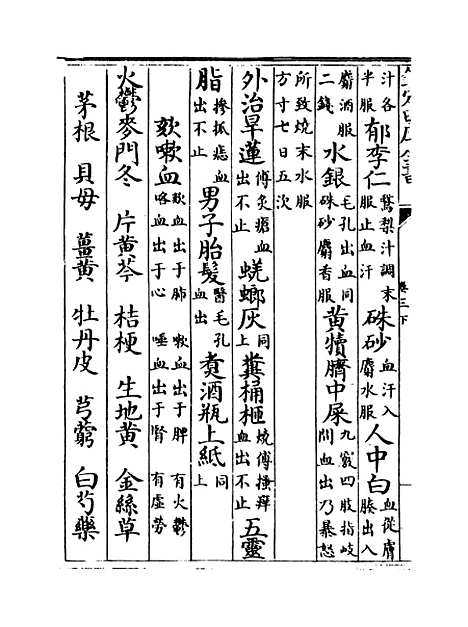 汁各半服 郁李仁 鵞梨汁調末服止血汗 硃砂 血汗入麝水服 人中白 血從膚腠出入
麝酒服二錢 水銀 毛孔出血同硃砂麝香服 黄犢臍中屎 九竅四肢指岐間血出乃暴怒
所致燒末水服方寸七日五次
外治旱蓮 傅灸瘡血出不止 蜣蜋灰 同上 糞桶 燒傅搔痒血出不止 五靈
脂 摻抓痣血出不止 男子胎髮 醫毛孔血出 煑酒瓶上紙 同上
欬嗽血 欬血出于肺 嗽血出于脾 咯血出于心 唾血出于腎 有火鬱 有虚勞
火鬱麥門冬 片黄芩 桔梗 生地黄 金絲草
茅根 貝母 薑黄 牡丹皮 芎藭 白芍藥